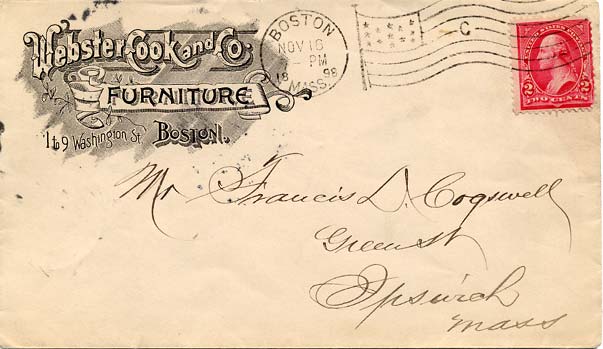 Webster, Cook and Co.
FURNITURE
1 to 9 Washington St. BOSTON.
BOSTON
NOV 16
PM
18 98
MASS.
C
2 2
TWO CENTS
Mr Francis D. Cogswell
Green St
Ipswich
Mass